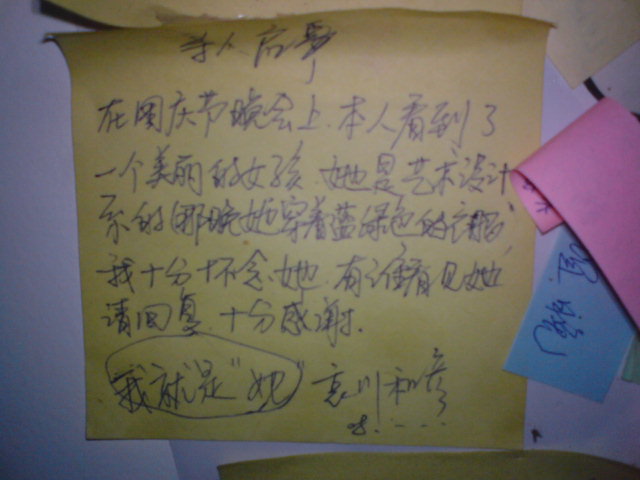 寻人启事
在国庆节晚会上，本人看到了
一个美丽的女孩，她是艺术设计
系的，那晚她穿着蓝绿色的衣服，
我十分怀念她，有谁看见她，
请回复，十分感谢．
我就是"她"